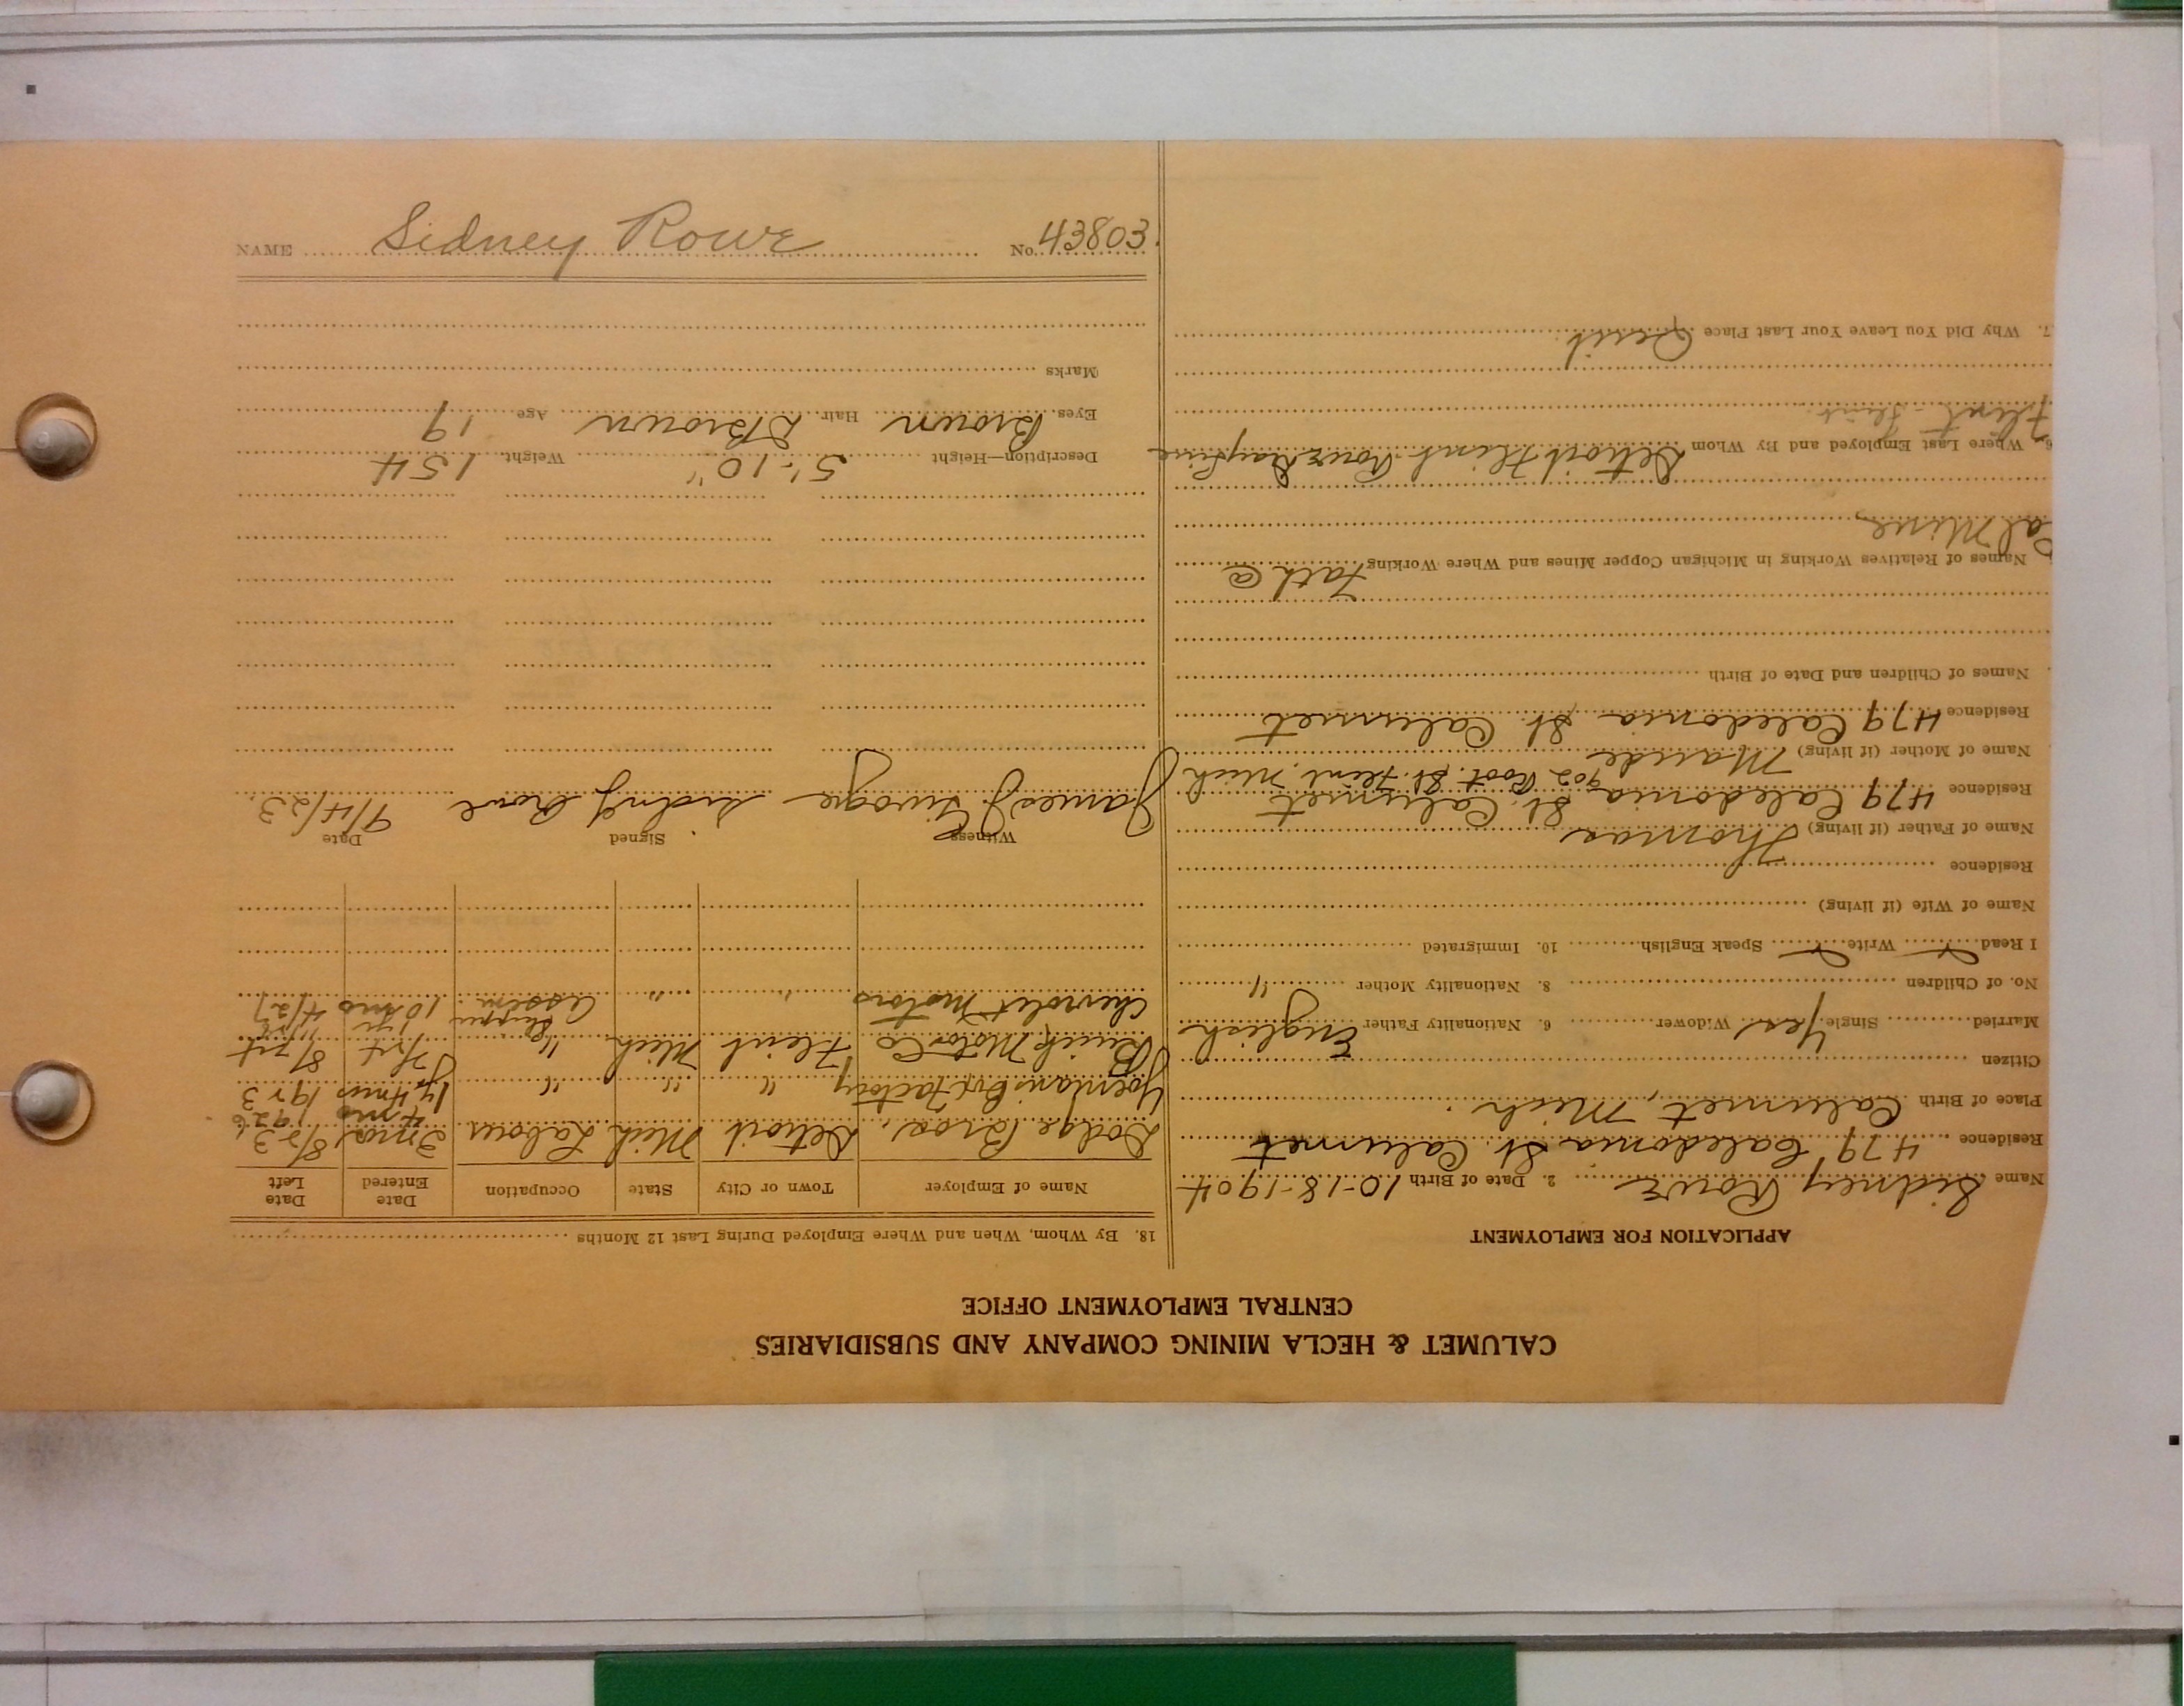 CALUMET & HECLA MINING COMPANY AND SUBSIDIARIES
CENTRAL EMPLOYMENT OFFICE
APPLICATION FOR EMPLOYMENT
Name Sidney Rowe 2. Date of Birth 10-18-1904
Residence 479 Caledonia St. Calumet
Place of Birth Calumet, Mich.
Citizen
Married Single Yes Widower 6. Nationality Father English
No. of Children 8. Nationality Mother "
I Read Write Speak English 10. Immigrated
Name of Wife (if living)
Residence
Name of Father (if living) Thomas
Residence 479 Caledonia St. Calumet
902 Root. St. Flint, Mich
Name of Mother (if living) Maude
Residence 479 Caledonia St. Calumet
Names of Children and Date of Birth
Names of Relatives Working in Michigan Copper Mines and Where Working Fath @
Cal Mine
6. Where Last Employed and By Whom Detroit Flint
Flint - Flint
7. Why Did You Leave Your Last Place Quit.
18. By Whom, When and Where Employed During Last 12 Months
Name of Employer Town or City State Occupation Date Entered Date Left
Dodge Bros. Detroit Mich Labour 3 mos 8/23
4 mo 1926
Yoemans Box Factory " " " 1 yr 4 mos 1923
Buick Motor Co Flint Mich "
Chevrolet Motors " " assem. 10 mo 4/27
Witness Signed Date
James J. Sidney Rowe 9/4/23.
Description—Height 5'-10" Weight 154
Eyes Brown Hair D Brown Age 19
Marks
NAME Sidney Rowe No. 43803.